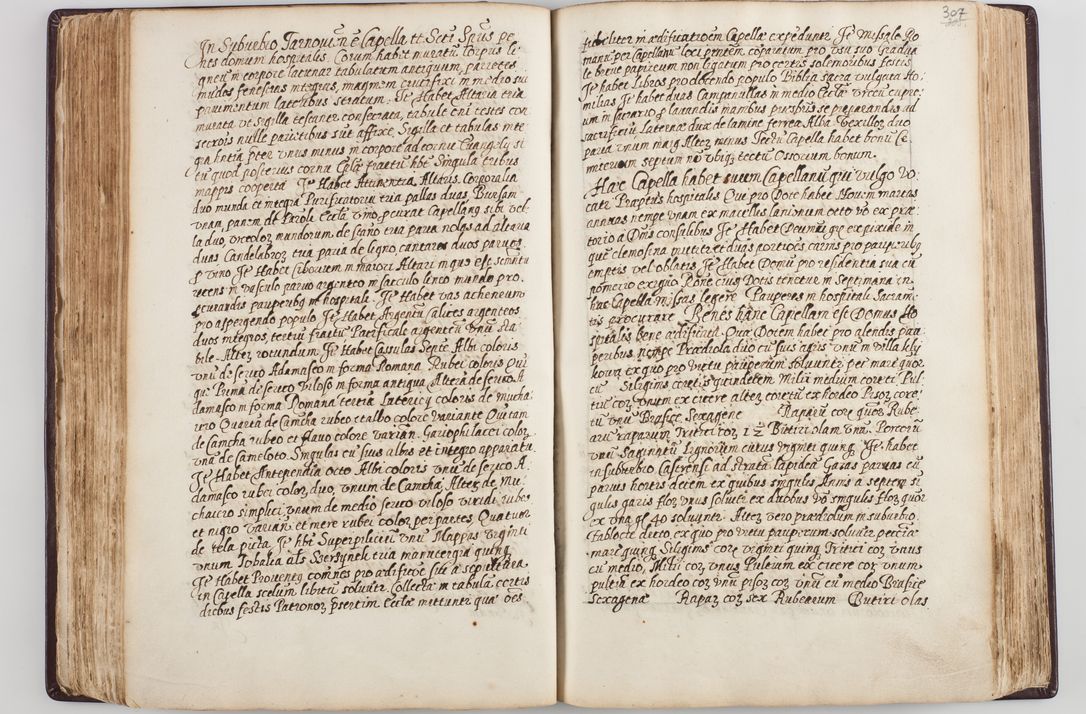 In Suburbio Tarnovien̄ ē Capella tt Scti Sp̄us pe
nes domum hospitalis. Corum habet muratū Corpus li
gneū in corpore lacunar tabulatum antiquum, parietes
nudos fenestras integras, imaginem crucifixi in medio sui
pavimentum lateribus stratum. Jt Habet Altaria tria
murata ut sigilla testantr consecrata, tabule eni testes con
secrōis nulle parietibus sūt affixe. Sigilla et tabulas inte
gra p̄ter unus minus in corpore ad cornu Evangely si
tū quod posterius cornu Ep̄le fractū hb̄t Singula tribus
mappis cooperta Jt Habet Atumenta Altaris. Corporalia
duo munda et integra Purificatoria tria pallas duas Bursam
unam panem de Paroli Eccla vino, pcurat Capellang sibi vel
la duo, urceoloꝝ mundorum. de stāno tria paria nolas ad altaria
duas Candelabroꝝ tria paria de ligno cantaros duos parvus
p vino Jt Habet Ciborium in maiori Altari in quo est
recens in vasculo parvo argenteo in sacculo linco mundo pro
curandis pauperibꝗ in hospitali. Jt Habet vas acheneum
pro aspergendo populo Jt Habet Argentū Calices argenteos
duos integros, tertiū fractū Pacificale argenteū unū sta
bile. Alteꝝ rotundum. Jt Habet Cassulas Septē. Albi coloris
unū de serico Adamasco in forma Romana. Rubei coloris Qui
que Prima de serico viloso in forma antiqua, Altera de serico A
damasco in forma Romana tertia Latericy coloris de Mucha
iro Quarta de Camcha rubeo et albo colore variante Quintam
de Camcha rubeo et flavo colore varian. Gariophilacei coloꝝ
unā de Cameloto. Singulas cū suis albis et integro apparatu
Jt Habet Antependia octo Albi coloris unū de serico A
damasco rubei coloꝝ duo, unum de Camcha, Alteꝝ de Mu
chairo simplici unum de medio serico viloso viridi rubeo
et nigro varian et mere rubei coloꝝ per partes. Quatuor
de tela picta. Jt hb̄t Superpliciū unū Mappas viginti
unum Tobalia als Szersynek tria manutergia quinꝗ
Jt Habet Proventꝗ comnes pro aedificijs
in Capella solvunt. Collecta in tabula certis
diebus festis Patronoꝝ p̄sertim Ecclae mittantr quā oēs
307
fideliter in aedificatioēm Capellae expedunt. Jt Missale Ro
manū per Capellanū loci p̄ntēm comparatum pro usu suo Gradua
le breve papireum non ligatum pro certis solemnibus festis
Jt habet Libros pro docendo populo Biblia sacra vulgata Ho
milias Jt habet duas Campanullas in medio Eccle urceū cupre
um in sacrario p lavandis manibus presbris se praeparandis ad
sacrificiū Laternae duae de lamine ferrea Alba Vexilloꝝ duo
paria unum maig Alteꝝ minus Tectū Capella habet bonū Ce
miterium septum nō ubiꝗ tectū Ossorium bonum.
Haec Capella habet suum Capellanū qui vulgo vo
catr Praeptus hospitalis Qui pro Dote habet Novem marcas
annuas nempe unam ex macellis lanionum octo vō ex prae
torio a Dnis consulibus Jt Habet
que elemosina mittitr et duas portioēs carnis pro pauperibꝗ
emptis vel oblatis. Jt Habet Domū pro residentia sua cū
pomerio exiguo Ponē cuig Dotis tenetur in Septimana in
hac Capella missas legere Pauperes in hospitali Sacram
tis procurare Penes hanc Capellam est Domus Ho
spitalis bene aedificata Quae Dotem habet pro alendis pau
peribus nempe Praediola duo cū suis agris unū in villa Kly
kova ex quo pro victu pauperum solvuntr per mare quor
cū Siliginis coretis quindecem Milii medium coreti Pul
tiū coꝝ unum ex cicere alteꝝ coretū ex hordeo Pisoꝝ core
tū unū Brasice Sexagene Raparū core quoꝝ Rube
arū raparum Tritici coꝝ 1 ½ Butiri olam unā. Porcorū
unū Saginatū Lignorum currus viginti quinꝗ Jt habet
in suburbio Caserensi ad Strata lapidea Gazas parvas cū
parvis hortis decem ex quibus singulis Annis a septem si
gulis garis floꝝ unus solvitr ex duobus vō singulis floꝝ quor
ex una gl 40 solvuntr Alteꝝ vero praediolum in suburbio
Zablocie dicto, ex quo pro victu pauperum solvitr peccūia
mare quinꝗ Siliginis core viginti quinꝗ Tritici coꝝ unus
cū medio, Milii coꝝ unus Pulcrum ex cicere coꝝ unum
pultiū ex hordeo coꝝ unū pisoꝝ coꝝ unū cū medio Brasice
sexagenae Rapaꝝ coꝝ sex Rubearum Butiri olas